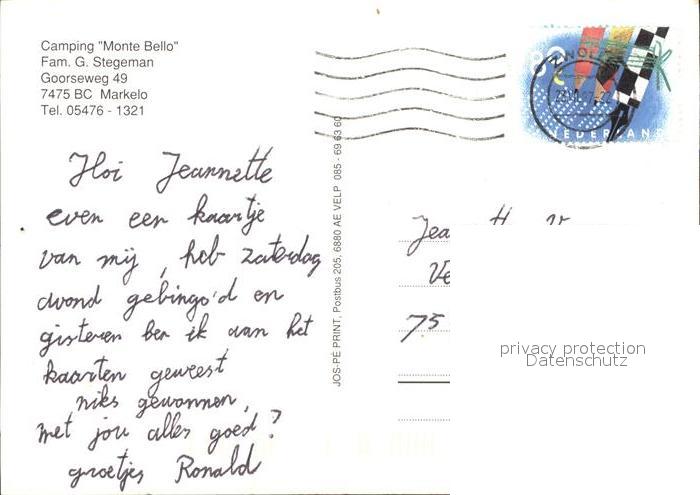 Camping "Monte Bello"
Fam. G. Stegeman
Goorseweg 49
7475 BC Markelo
Tel. 05476 - 1321
Hoi Jeannette
even een kaartje
van mij, heb zaterdag
avond gebingo'd en
gisteren ben ik aan het
kaarten geweest
niks gewonnen,
met jou alles goed?
groetjes Ronald
JOS-PÉ PRINT, Postbus 205, 6880 AE VELP 085 - 69 63 60
80
NEDERLAND
ZWOLLE
Jea
Ve
75
privacy protection
Datenschutz